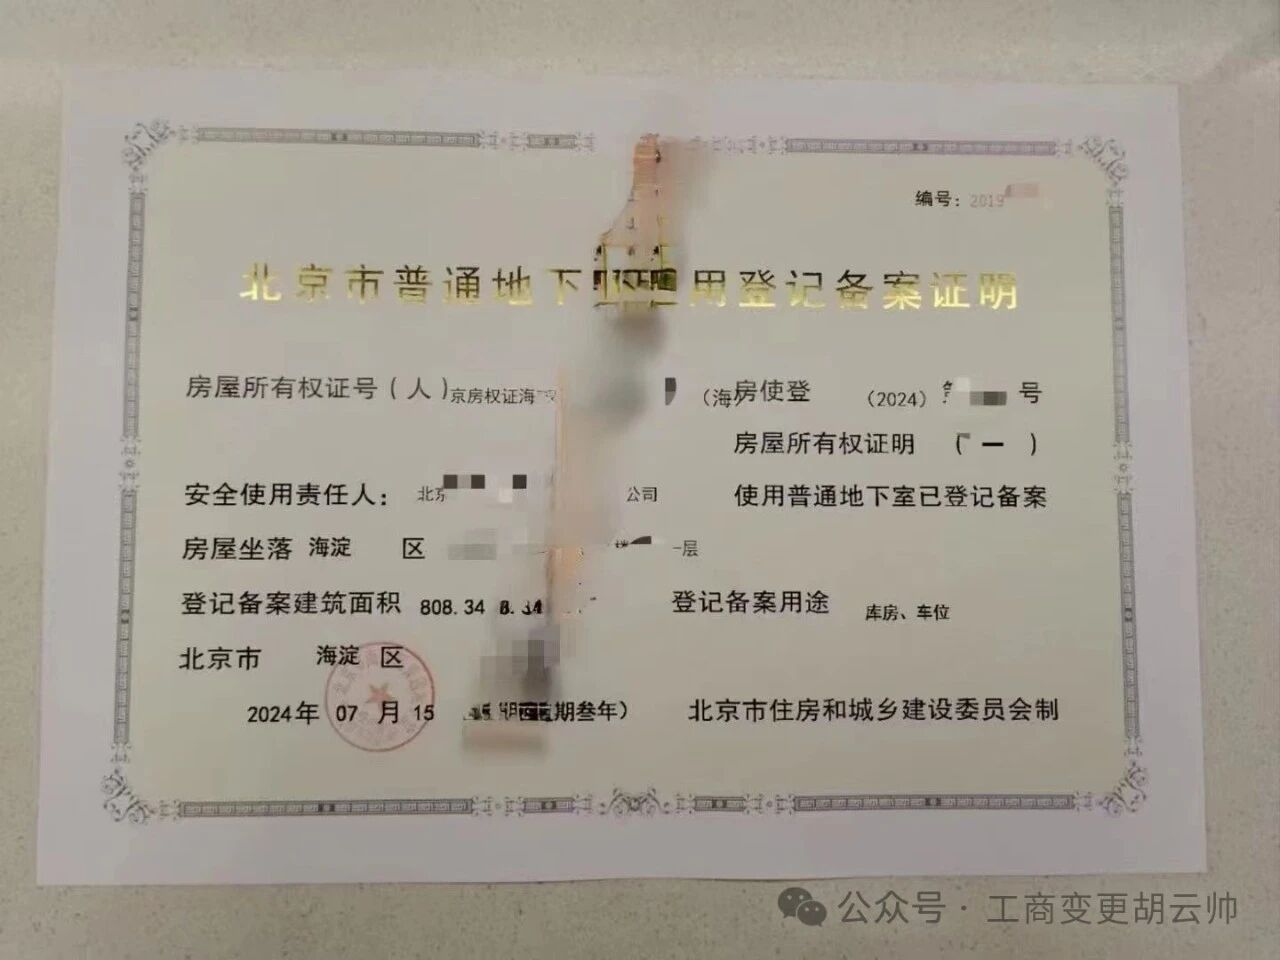 编号：2019
北京市普通地下 用登记备案证明
房屋所有权证号（人） 京房权证海 （海）房使登 （2024） 号
房屋所有权证明 （ 一 ）
安全使用责任人： 北京 公司 使用普通地下室已登记备案
房屋坐落 海淀 区 一层
登记备案建筑面积 808.34 登记备案用途 库房、车位
北京市 海淀 区
2024年 07 月 15 期叁年） 北京市住房和城乡建设委员会制
公众号 · 工商变更胡云帅